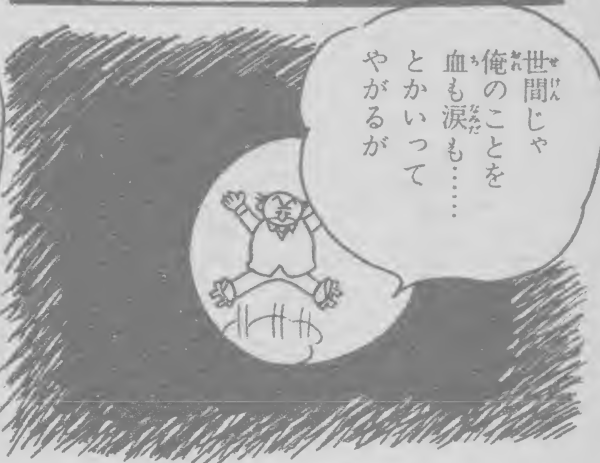 世間じゃ
俺のことを
血も涙も……
とかいって
やがるが